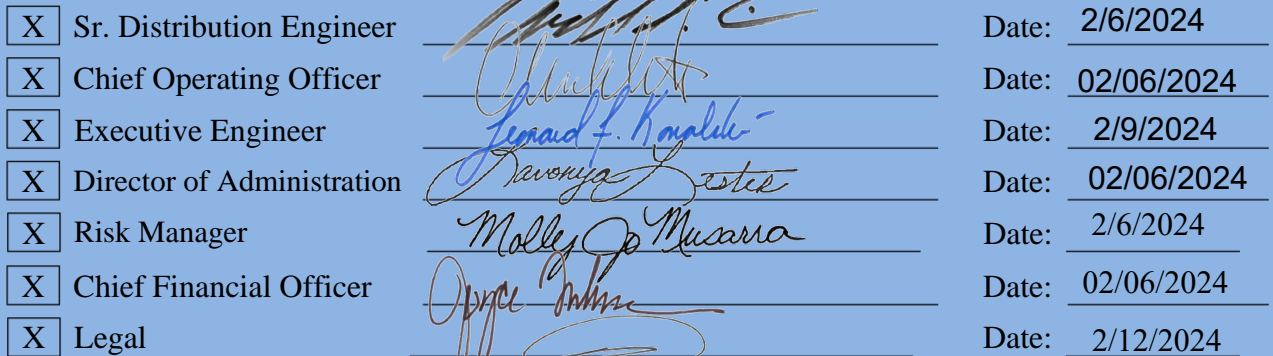 X Sr. Distribution Engineer Date: 2/6/2024
X Chief Operating Officer Date: 02/06/2024
X Executive Engineer Leonard F. Date: 2/9/2024
X Director of Administration Lavonya Lester Date: 02/06/2024
X Risk Manager Molly Jo Musarra Date: 2/6/2024
X Chief Financial Officer Joyce Date: 02/06/2024
X Legal Date: 2/12/2024